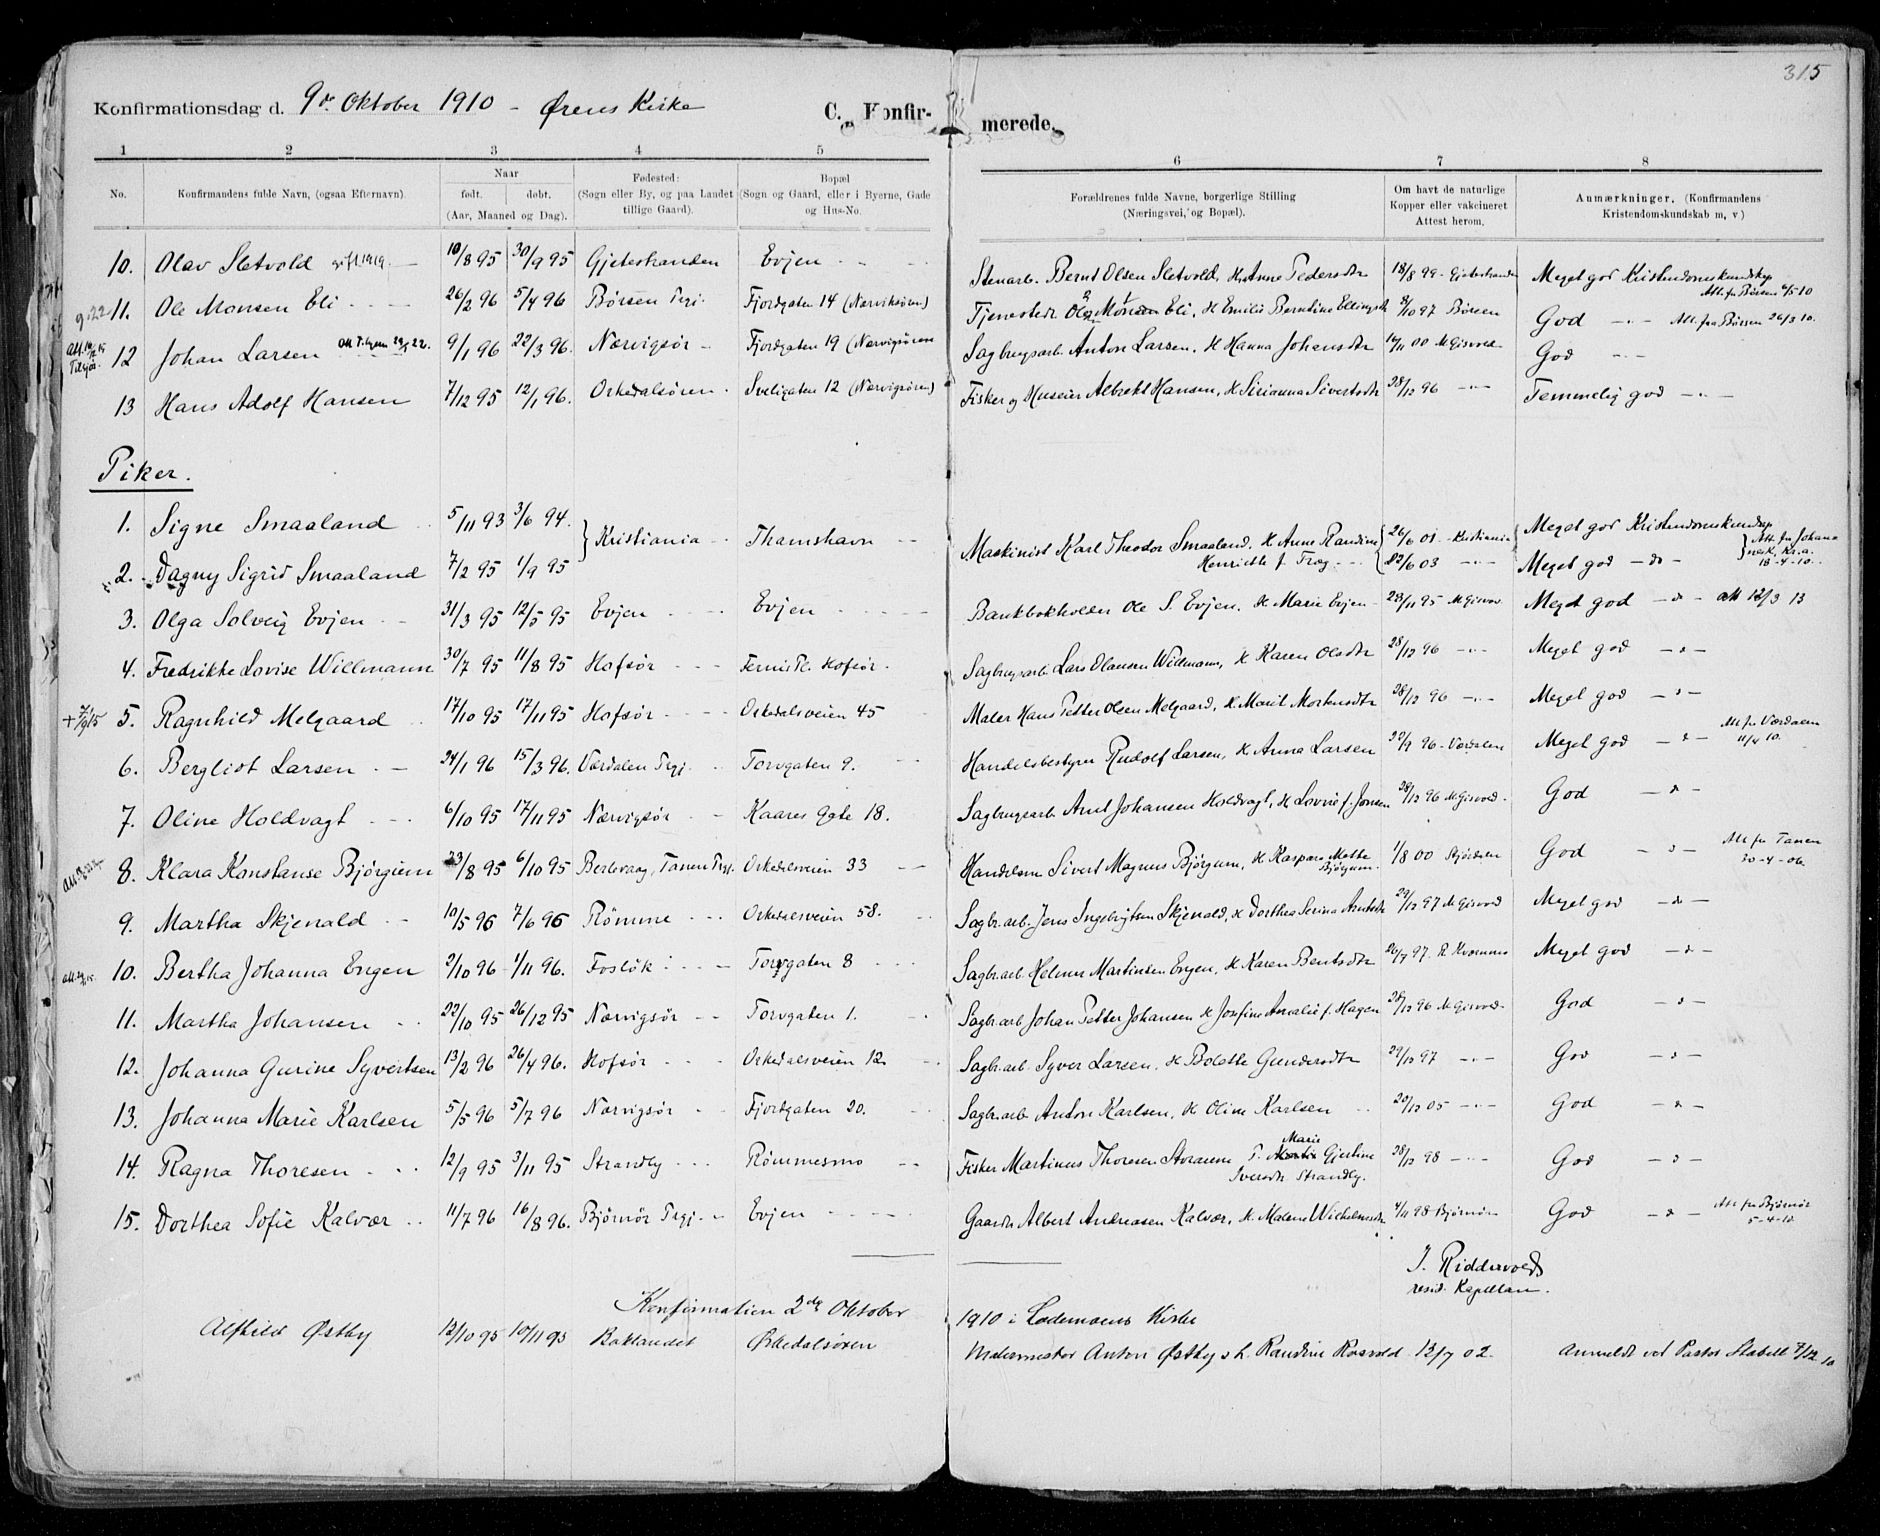 315
Konfirmationsdag d. 9de Oktober 1910 - Ørens Kirke C. Konfirmerede.
1 2 3 4 5 6 7 8
No. Konfirmandens fulde Navn, (ogsaa Efternavn). Naar født. døbt. (Aar, Maaned og Dag). Fødested: (Sogn eller By, og paa Landet tillige Gaard). Bopæl (Sogn og Gaard, eller i Byerne, Gade og Hus-No. Forældrenes fulde Navne, borgerlige Stilling (Næringsvei, og Bopæl). Om havt de naturlige Kopper eller vakcineret Attest herom. Anmærkninger, (Konfirmandens Kristendomskundskab m, v)
10. Olav Sletvold gift 1919. 10/8 95 30/9 95 Gjetestranden Evjen Stenarb. Bernt Olsen Sletvold, H. Anne Pedersdtr 18/8 99 - Gjetestranden Meget god Kristendomskundskap Att. fra Børsen 4/5 10
9-22 11. Ole Monsen Eli 26/2 96 5/4 96 Børsen Prgj. Fjordgaten 14 (Nærviksøren) Eli, H Emilie Berntine Ellingsdtr 3/10 97 Børsen God -"- Att. fra Børsen 26/3 10.
12 Johan Larsen 9/1 96 22/3 96. Nærvigsør - Fjordgaten 19 (Nærvigsøren Sagbrugsarb. Anton Larsen. H Hanna Johansdtr 14/11 00 M Gisvold God -"-
13 Hans Adolf Hansen 7/12 95 12/1 96. Orkedalsøren. Sveligaten 12 (Nærvigsøren) Fisker og Huseier Albrekt Hansen, H Sirianna Sivertsdtr 28/12 96 -"- Temmelig god -"-
Piker.
1. Signe Smaaland 5/11 93 3/6 94. } Kristiania - Thamshavn - Maskinist Karl Theodor Smaaland. H Anne Randine { 26/6 01 - Kristiania { Meget god Kristendomskundskap } Att. fra Johannesk. Kr.a. 18-4-10.
2. Dagny Sigrid Smaaland 7/2 95 1/9 95 Henriette f. Træg - 22/6 03 -"- Meget god -do-
3. Olga Solveig Evjen 31/3 95 12/5 95 Evjen Evjen Bankbokholder Ole S. Evjen. H Marie Evjen - 23/11 95 M Gisvol Meget god -"- att 12/3 13
4. Fredrikke Lovise Willmann 30/7 95 11/8 95 Hofsør Fernis Pl. Hofsør. Sagbrugsarb. Lars Olausen Willmann, H Karen Olsdtr 28/12 96 -"- Meget god -"-
5. Ragnhild Melgaard 17/10 95 17/11 95 Hofsør Orkedalsveien 45 Maler Hans Petter Olsen Melgaard, H. Marit Mortensdtr 28/12 96 -"- Meget god -"-
6. Bergliot Larsen 24/1 96 15/3 96. Værdalen Prgj. Torvgaten 9. Handelsbestyrer Rudolf Larsen, H Anna Larsen 30/9 96 - Værdalen Meget god -"- Att. fra Værdalen 11/4 10.
7. Oline Holdvagt 6/10 95 17/11 95 Nærvigsør Kaares gate 18. Sagbrugsarb. Arnt Johansen Holdvagt, H Lovise f. Jonsen 28/12 96 M Gisvold. God -"-
8. Klara Konstanse Bjørgum 23/8 95 6/10 95 Berlevaag, Tanen Prgj. Orkedalsveien 33 Handelsm Sivert Magnus Bjørgum, H Kaspara Mette Bjørgum. 1/8 00 Stjørdalen God -"- Att. fra Tanen 30-4-06.
9. Martha Skjenald 10/5 96 7/6 96 Rømme Orkedalsveien 58. Sagbr.arb. Jens Ingebrigtsen Skjenald, H Dorthea Serina Arntsdtr 29/12 97 M Gisvold Meget god -"-
10. Bertha Johanna Engen 2/10 96 1/11 96. Foslok Torvgaten 8 Sagbr.arb Helmer Martinsen Engen, H. Karen Bentsdtr 26/7 97. Meget god -"-
11. Martha Johansen 22/10 95 26/12 95 Nærvigsør Torvgaten 1. Sagbr.arb Johan Petter Johansen H Josefine Amalie f. Hagen 28/12 96 M Gisvold God -"-
12. Johanna Gurine Syvertsen 13/2 96 26/4 96. Hofsør Orkedalsveien 12 Sagbr.arb. Syver Larsen, H Bolette Gundersdtr 29/12 97 -"- God -"-
13. Johanna Marie Karlsen 5/5 96 5/7 96 Nærvigsør Fjordgaten 20. Sagbr.arb Anton Karlsen, H Oline Karlsen 20/12 05 -"- God -"-
14. Ragna Thoresen 12/9 95 3/11 95 Strandby Rømmesmo Fisker Martinus Thoresen P. Marie Gjertine Iversdtr Strandby. 28/12 98 -"- God -"-
15. Dorthea Sofie Kalvær 11/7 96 16/8 96. Bjørnør Prgj. Evjen Gaardbr Albert Andreasen Kalvær, H. Malene Wilhelmsdtr 4/11 98 Bjørnør God -"- Att fra Bjørnør 5-4-10.
J. Riddervold
resid. Kapellan.
Konfirmation 2den Oktober 1910 i Lademoens Kirke
Alfhild Østby 13/10 95 10/11 95 Baklandet Orkedalsøren Malermester Anton Østby o h. Randine Rosvold 12/7 02. Anmeldt ved Pastor Stabell 7/12 10